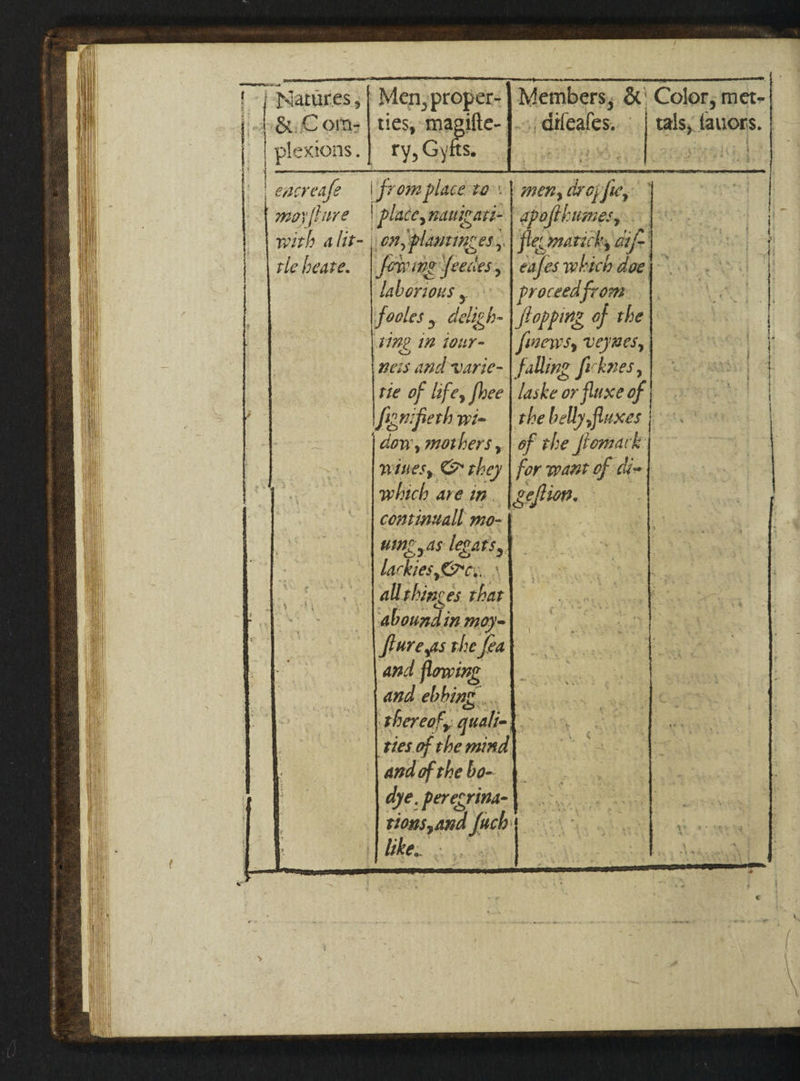 Natures,
& Com-
plexions.
Men, proper-
ties, magiste-
ry, Gyfts.
Members, &
diſeaſes.
Color, met-
tals, ſauors.
encreaſe
moyſture
with a lit-
tle heate.
from place to
place, nauigati-
on, plantinges,
ſowing ſeedes,
laborious,
fooles, deligh-
ting in iour-
neis and varie-
tie of life, ſhee
ſignifieth wi-
dow, mothers,
wiues, & they
which are in
continuall mo-
uing, as legats,
lackies, &c.
all thinges that
abound in moy-
ſture, as the ſea
and flowing
and ebbing
thereof, quali-
ties of the mind
and of the bo-
dye. peregrina-
tions, and ſuch
like.
men, dropſie,
apoſthumes,
flegmatick, diſ-
eaſes which doe
proceed from
ſtopping of the
ſinews, veynes,
falling ſicknes,
laske or fluxe of
the belly, fluxes
of the ſtomack
for want of di-
geſtion.